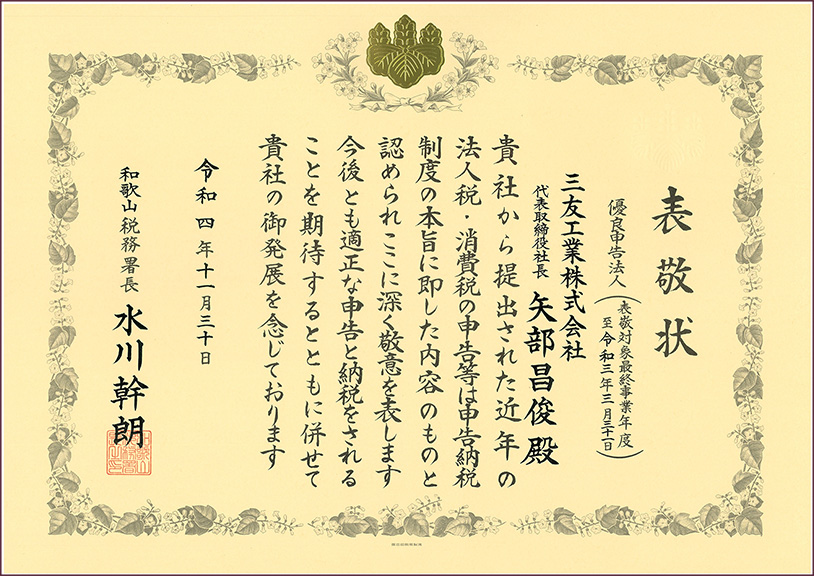 表敬状
優良申告法人
（表敬対象最終事業年度
至令和三年三月三十一日）
三友工業株式会社
代表取締役社長 矢部昌俊殿
貴社から提出された近年の
法人税・消費税の申告等は申告納税
制度の本旨に即した内容のものと
認められここに深く敬意を表します
今後とも適正な申告と納税をされる
ことを期待するとともに併せて
貴社の御発展を念じております
令和四年十一月三十日
和歌山税務署長 水川幹朗